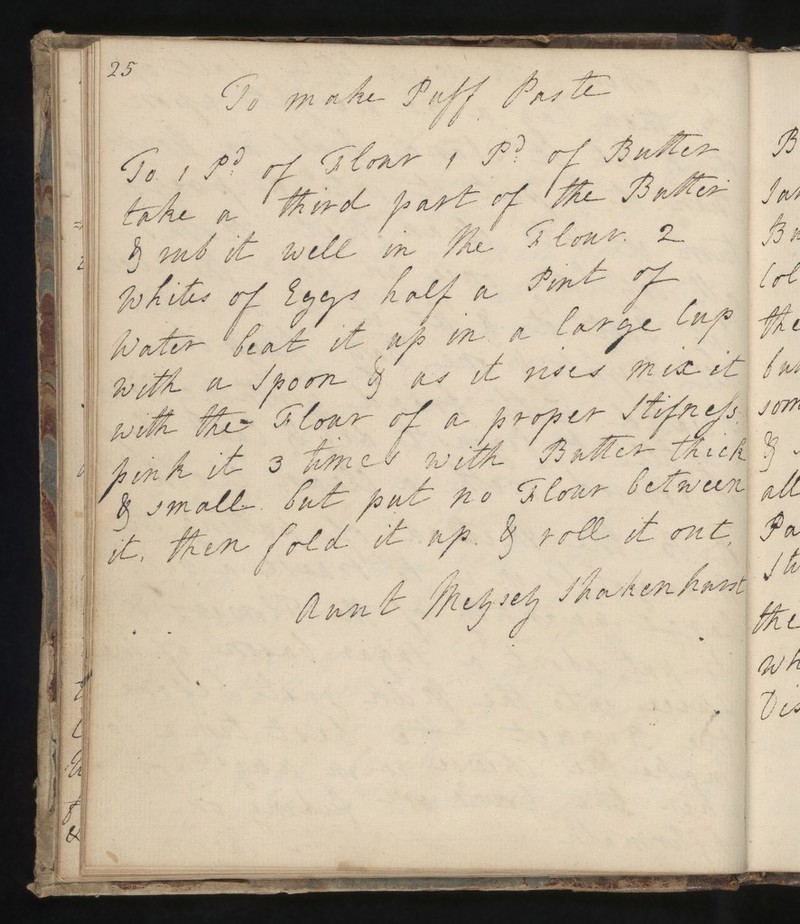 25
To make Puff Paste
To 1 Pd of Flour 1 Pd of Butter
take a third part of the Butter
& rub it well in the Flour. 2
Whites of Eggs half a Pint of
Water beat it up in a large Cup
with a Spoon & as it rises mix it
with the Flour of a proper Stifness.
pink it 3 times with Butter thick
& small. but put no Flour between
it, then fold it up. & roll it out,
Aunt Meysey Shakenhurst
B
the
som
&
all
Pa
the
wh